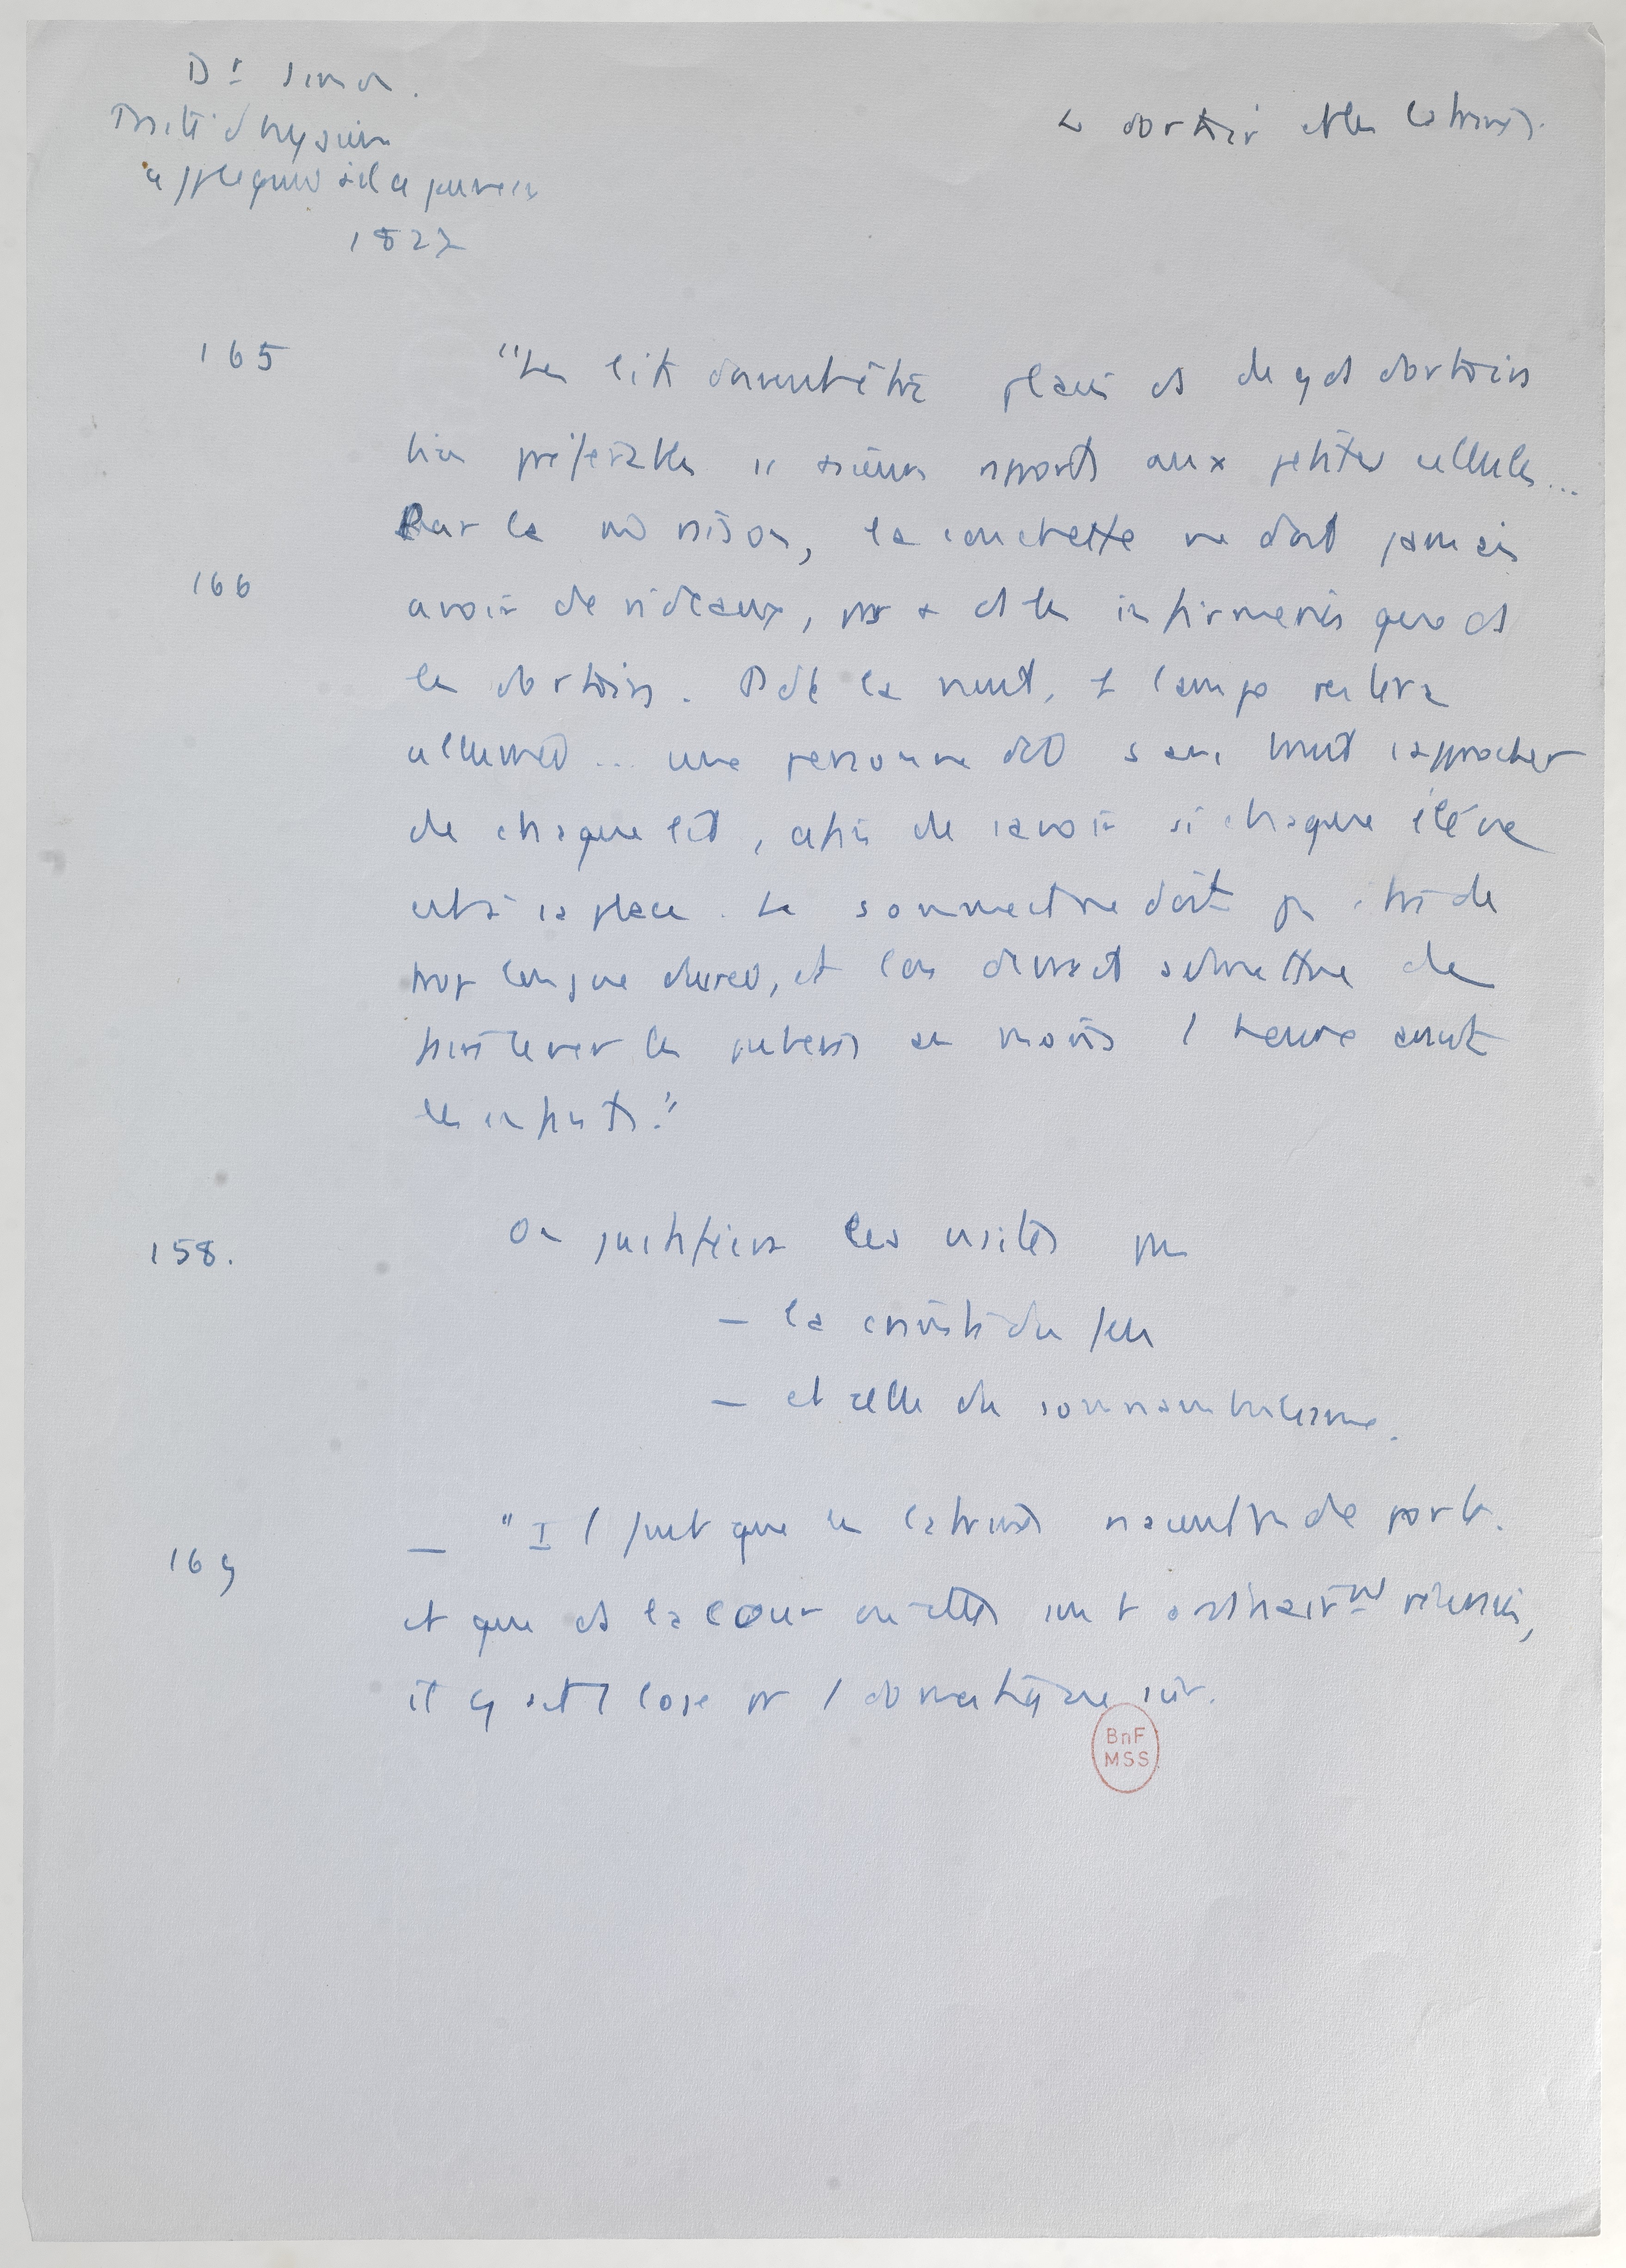 Dr Simon.
Traité d'hygiène
appliquée à la jeunesse
1827
Le dortoir et les latrines.
165
"Les lits doivent être placés ds de gds dortoirs
bien préférables ss plusieurs rapports aux petites cellules...
Par la mm raison, la couchette ne doit jamais
166
avoir de rideaux, pas + ds les infirmeries que ds
les dortoirs. Pdt la nuit, 1 lampe restera
allumée... une personne doit sans bruit s'approcher
de chaque lit, afin de savoir si chaque élève
est à sa place. Le sommeil ne doit pas être de
trop longue durée, et l'on devrait admettre de
faire lever les pubères au moins 1 heure avant
les enfants."
158.
On justifiera les visites par
— la crainte du feu
— et celle du somnambulisme.
169
— "Il faut que les latrines n'aient pas de porte.
et que ds la cour où elles sont ordinairemt réunies,
il y ait 1 loge pr 1 domestique sûr.
BnF
MSS